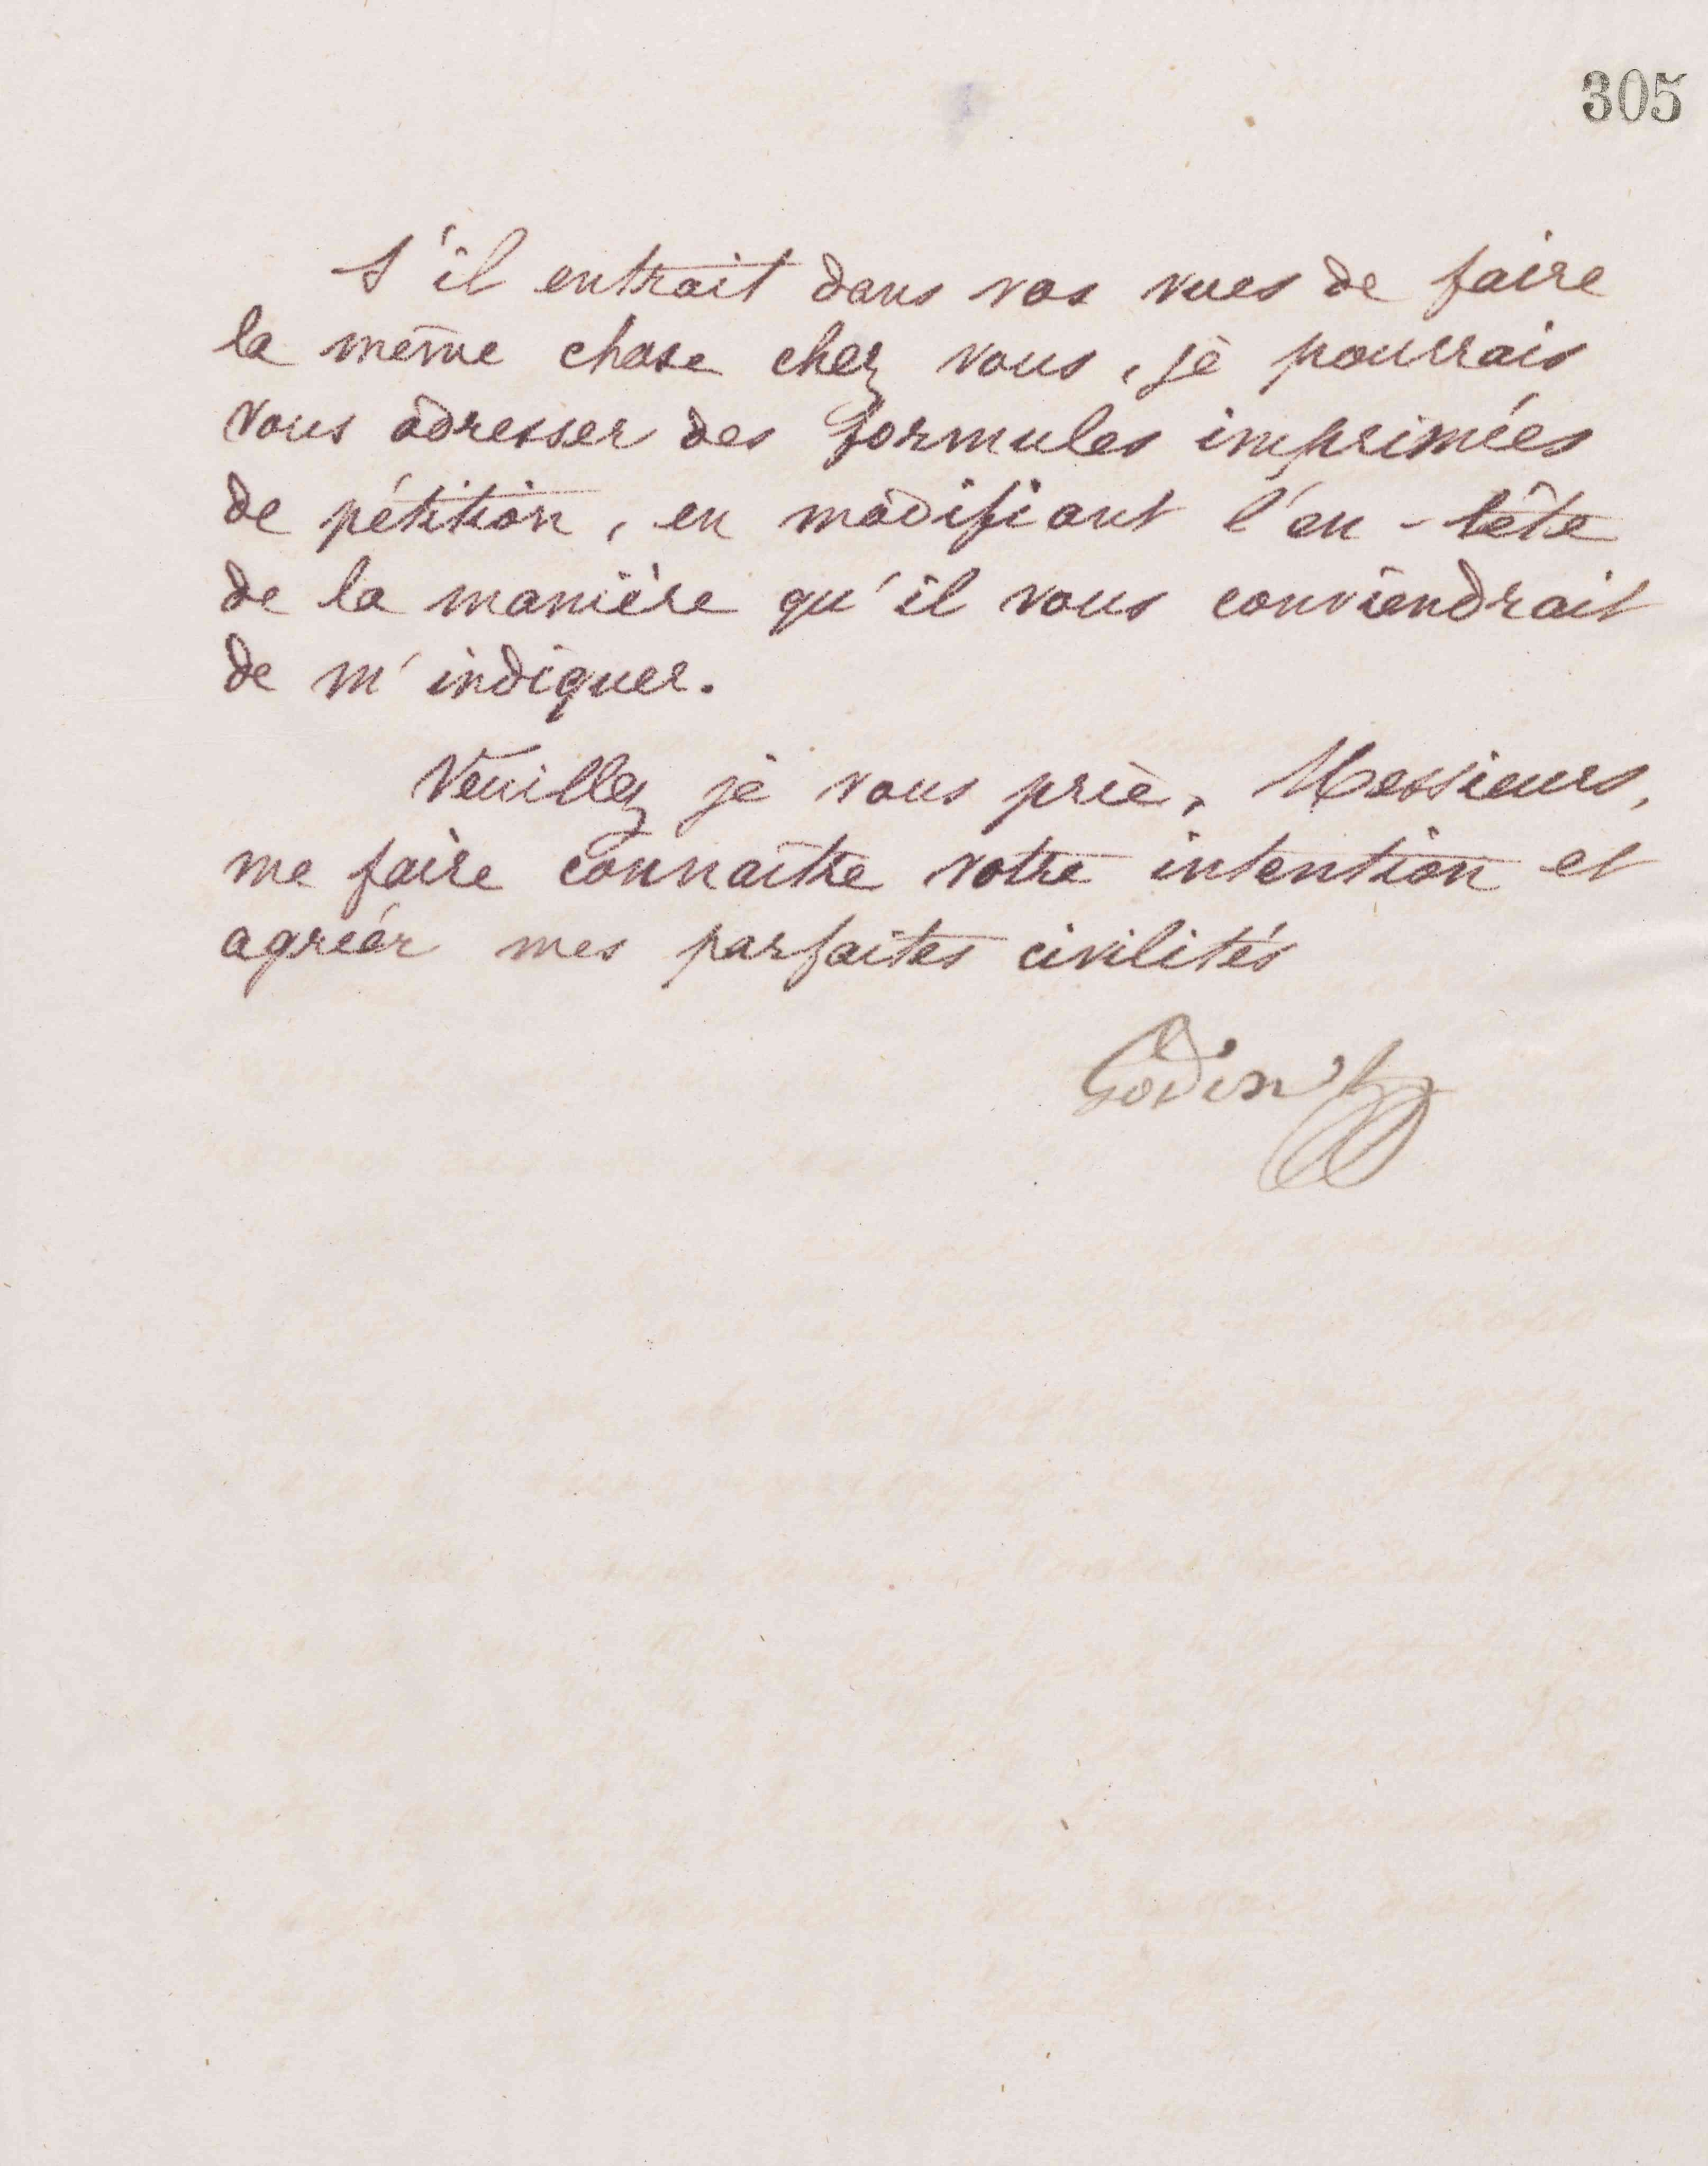 305
S'il entrait dans vos vues de faire
la même chose chez vous, je pourrais
vous adresser des formules imprimées
de pétition, en modifiant l'en-tête
de la manière qu'il vous conviendrait
de m'indiquer.
Veuillez je vous prie, Messieurs,
me faire connaître votre intention et
agréer mes parfaites civilités
Godin